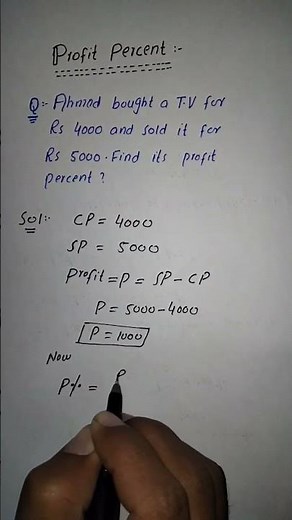 Profit Percent :-
Q:- Ahmad bought a T.V for
Rs 4000 and sold it for
Rs 5000. Find its profit
percent ?
Sol:- CP = 4000
SP = 5000
Profit = P = SP - CP
P = 5000 - 4000
P = 1000
Now
P% = P